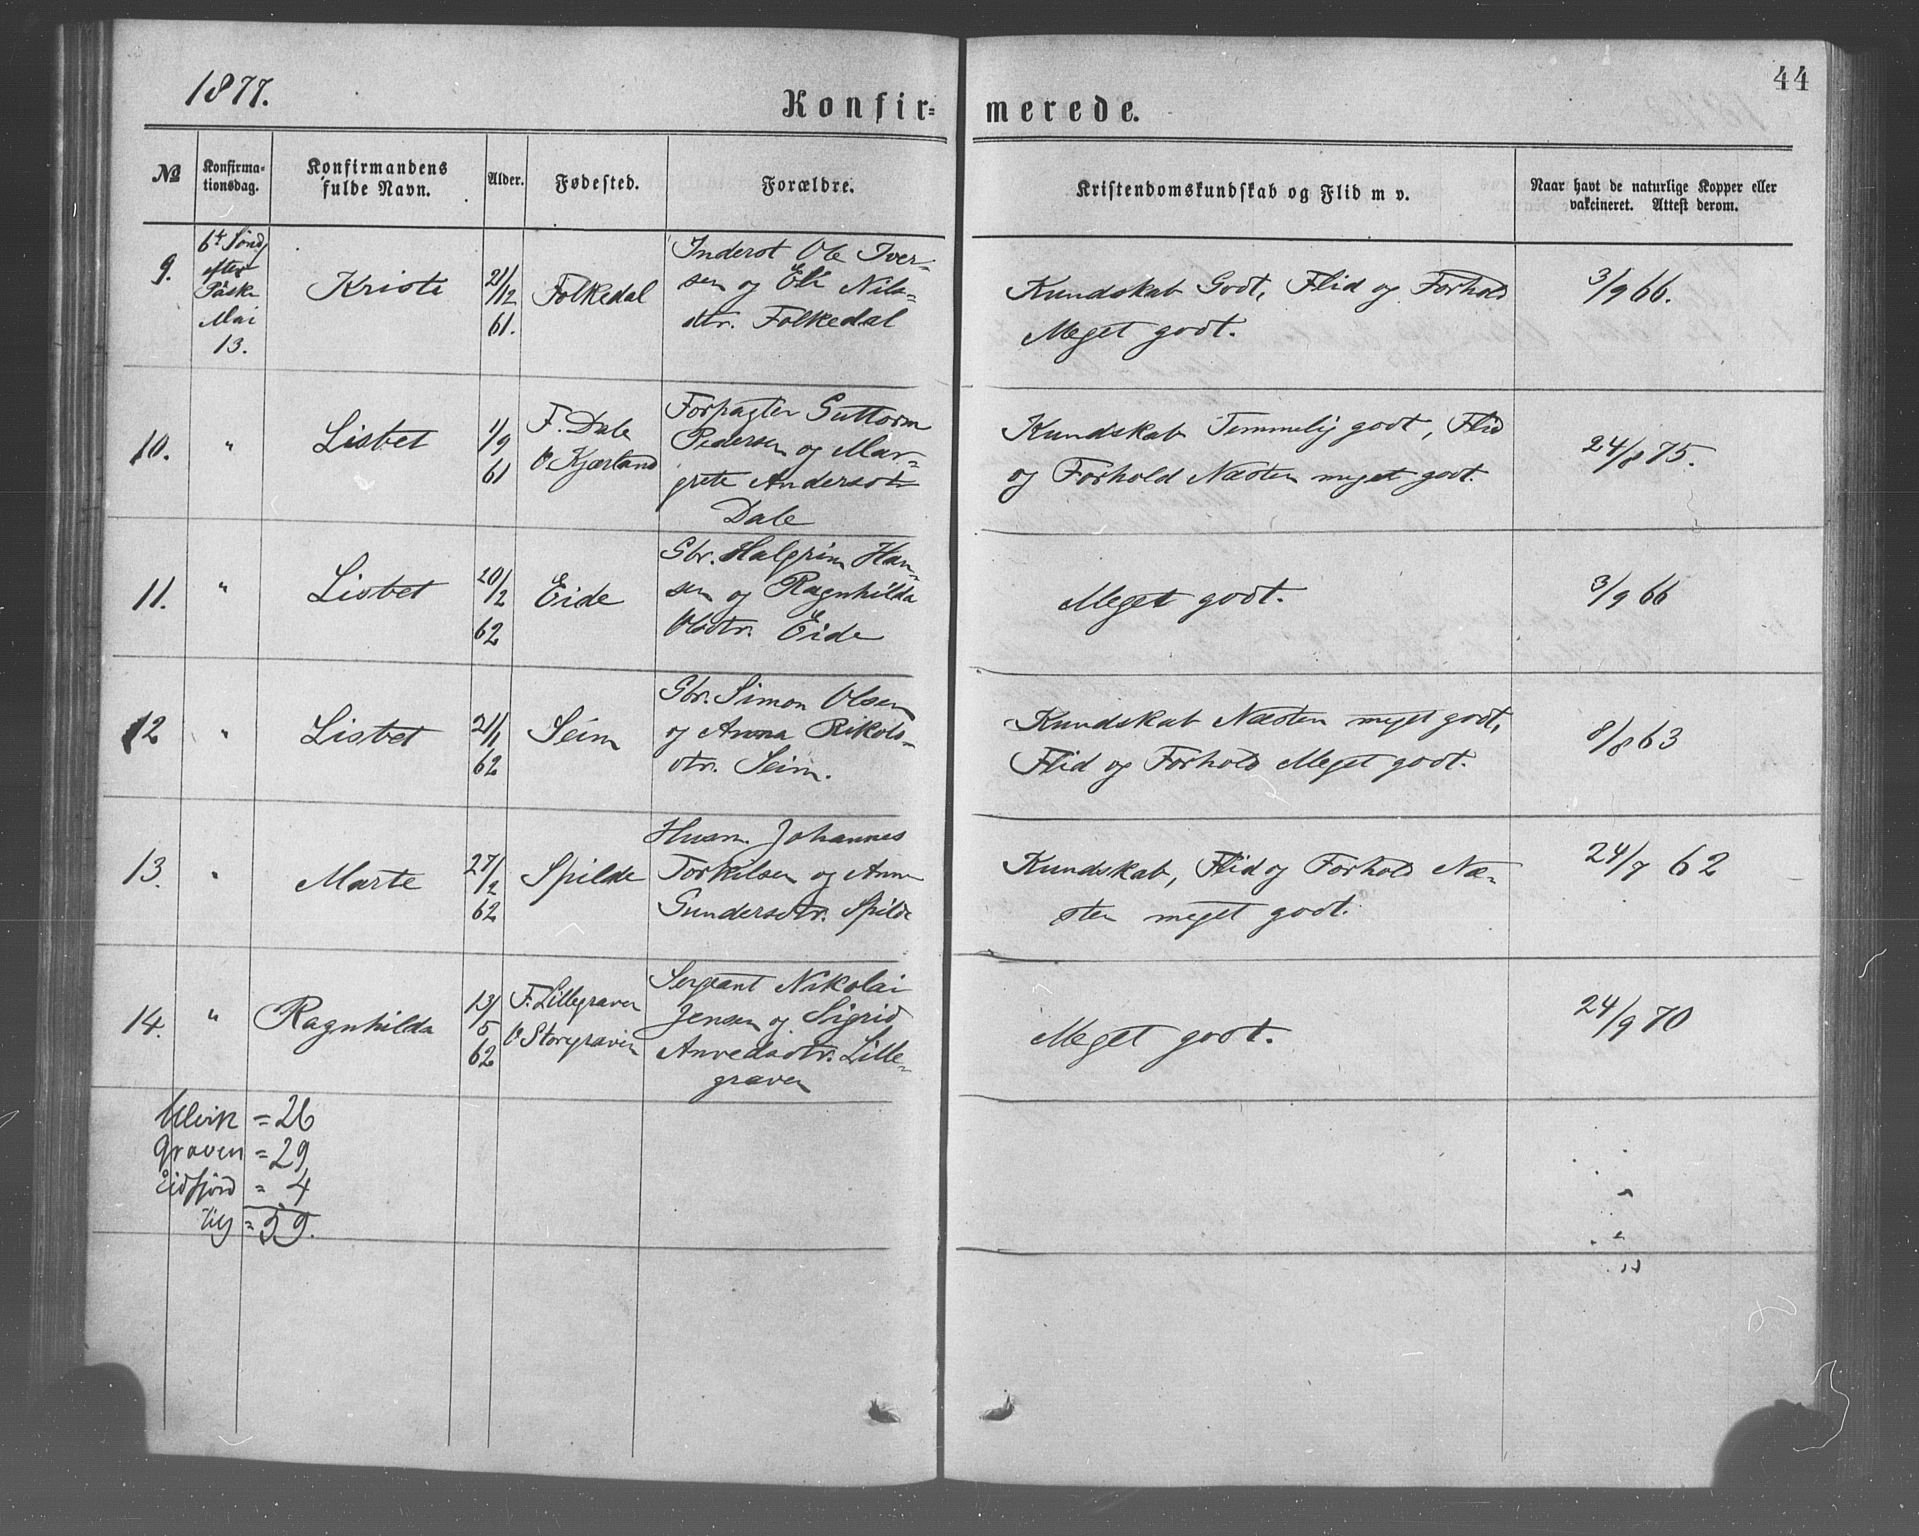 1877.
44
Konfir=
merede.
№
Konfirma-
tionsdag.
Konfirmandens
fulde Navn.
Alder.
Fødested.
Forældre.
Kristendomskundskab og Flid m v.
Naar havt de naturlige Kopper eller
vakcineret. Attest derom.
9.
6te Sønd
efter
Påske
Mai
13.
Kristi
21/12
61.
Folkedal
Inderst Ole Iver-
sen og Eli Nils-
dtr. Folkedal
Kundskab Godt, Flid og Forhold
Meget godt.
3/9 66.
10.
"
Lisbet
1/9
61
F. Dale
O Kjærland
Forpagter Guttorm
Pedersen og Mar-
grete Andersdtr
Dale
Kundskab Temmelig godt, Flid
og Forhold Næsten meget godt.
24/8 75.
11.
"
Lisbet
20/2
62
Eide
Gbr. Halgrim Han-
sen og Ragnhilda
Olsdtr. Eide
Meget godt.
3/9 66
12
"
Lisbet
21/1
62
Seim
Gbr. Simon Olsen
og Anna Rikols-
dtr. Seim.
Kundskab Næsten meget godt,
Flid og Forhold Meget godt.
8/8 63
13.
"
Marte
27/2
62
Spilde
Husm. Johannes
Torkilsen og Anna
Gundersdtr. Spilde
Kundskab, Flid og Forhold Næ-
sten meget godt.
24/7 62
14.
"
Ragnhilda
13/5
62
F. Lillegraven
O Storegraven
Sergeant Nikolai
Jensen og Sigrid
Anvedsdtr. Lille-
graven
Meget godt.
24/9 70
Ulvik = 26
Graven = 29
Eidfjord = 4
= 59.